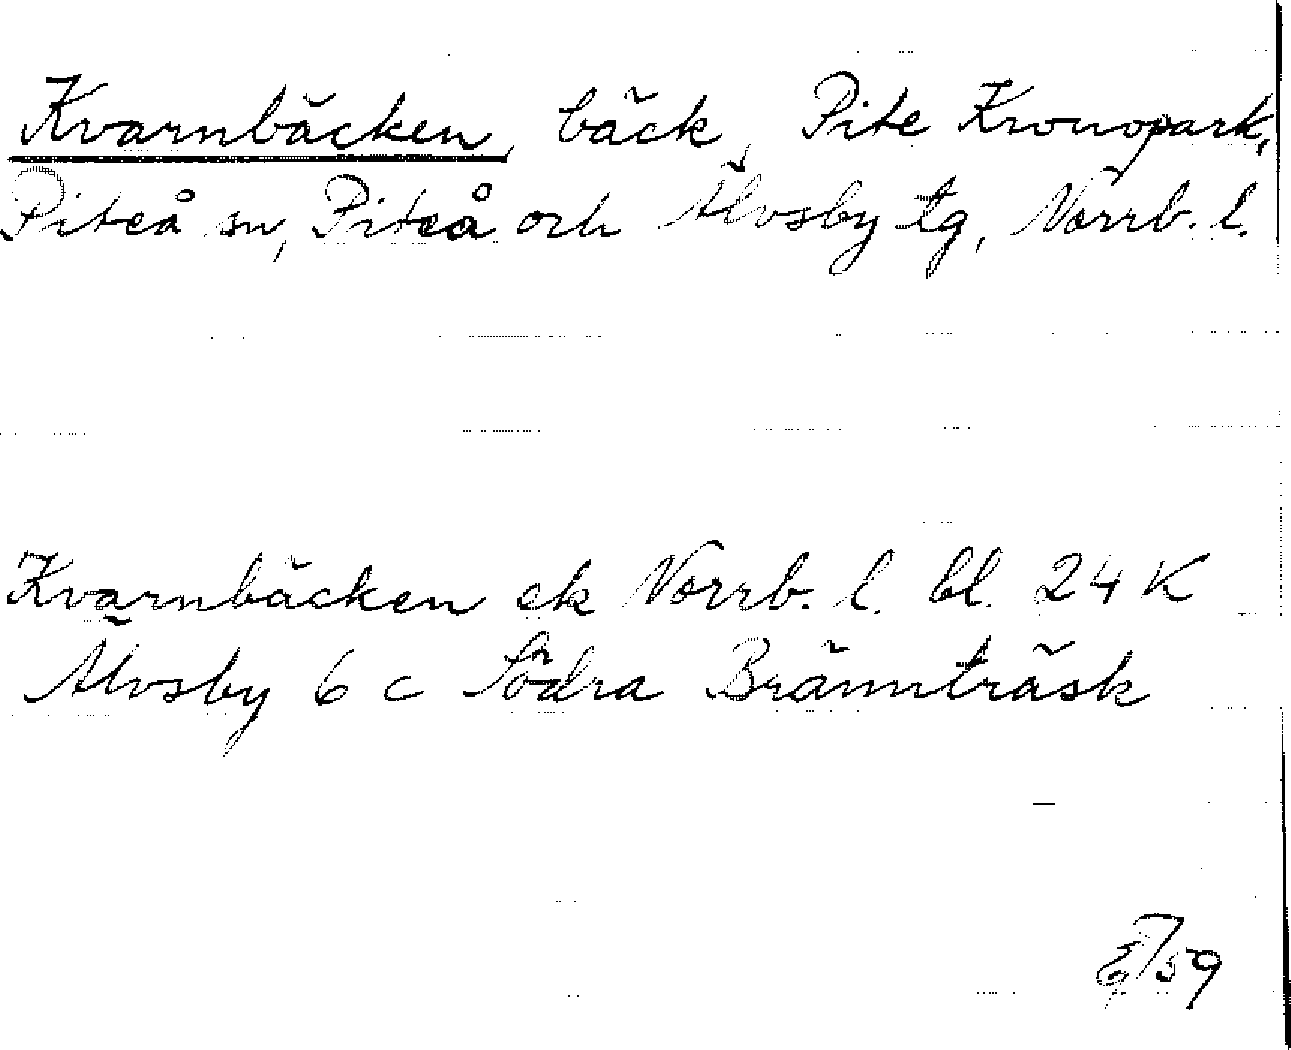 Kvarnbäcken, bäck, Pite Kronopark,
Piteå sn, Piteå och Älvsby tg, Norrb. l.
Kvarnbäcken ek Norrb. l. bl. 24 K
Älvsby 6 c Södra Brännträsk
/59